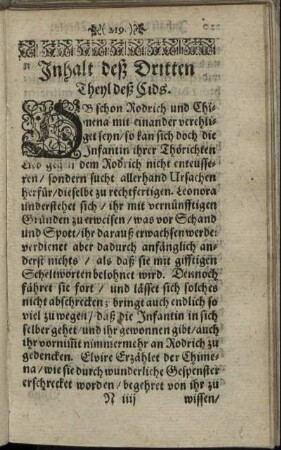 ( 219. )
Inhalt deß Dritten
Theyl deß Cids.
OB schon Rodrich und Chi-
mena mit einander verehli-
get seyn / so kan sich doch die
Infantin ihrer Thörichten
Lieb gegen dem Rodrich nicht enteusse-
ren / sondern sucht allerhand Ursachen
herfür / dieselbe zu rechtfertigen. Leonora
understehet sich / ihr mit vernünfftigen
Gründen zu erweisen / was vor Schand
und Spott / ihr darauß erwachsen werde:
verdienet aber dadurch anfänglich an-
derst nichts / als daß sie mit gifftigen
Scheltworten belohnet wird. Dennoch
fähret sie fort / und lässet sich solches
nicht abschrecken; bringt auch endlich so
viel zu wegen / daß die Infantin in sich
selber gehet / und ihr gewonnen gibt / auch
ihr vornimt nimmermehr an Rodrich zu
gedencken. Elvire Erzählet der Chime-
na / wie sie durch wunderliche Gespenster
erschrecket worden / begehret von ihr zu
N iiij wissen /